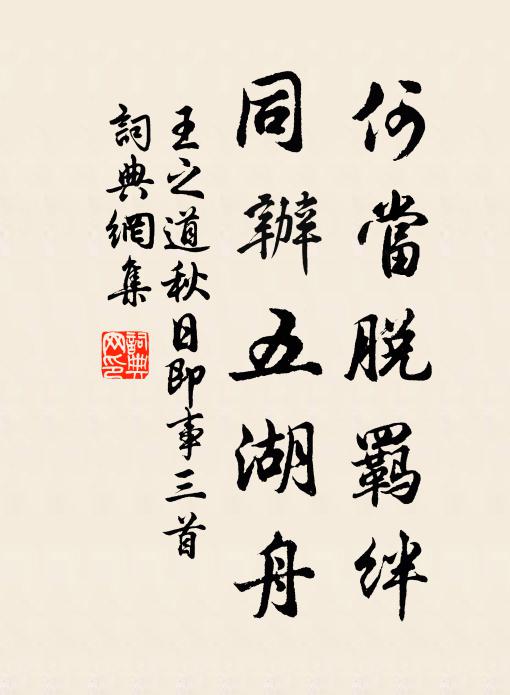 何當脫羈絆
同辦五湖舟
王之道秋日即事三首
詞典網集
詞典
网印